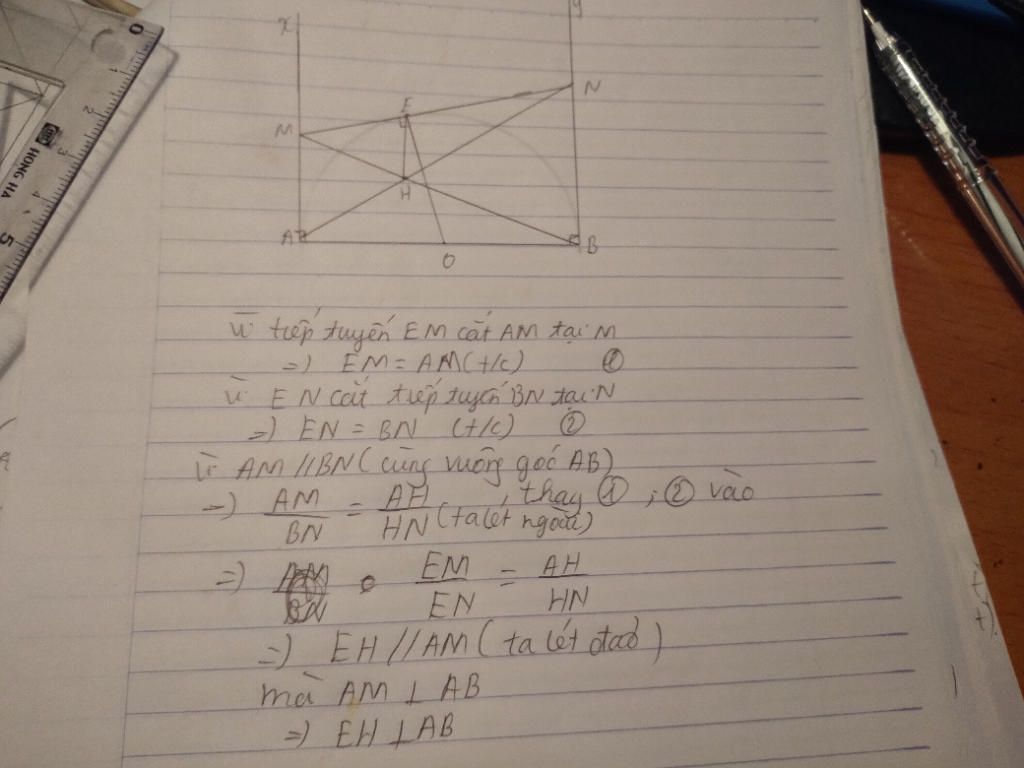 x
y
N
E
M
H
A
B
O
0
2
3
4
5
HONG HA
Vì tiếp tuyến EM cắt AM tại M
=) EM = AM (t/c) ①
Vì EN cắt tiếp tuyến BN tại N
=) EN = BN (t/c) ②
Vì AM // BN (cùng vuông góc AB)
=) AM/BN = AH/HN (ta lét ngoài), thay ①, ② vào
=) EM/EN = AH/HN
=) EH // AM (ta lét đảo)
mà AM ⊥ AB
=) EH ⊥ AB